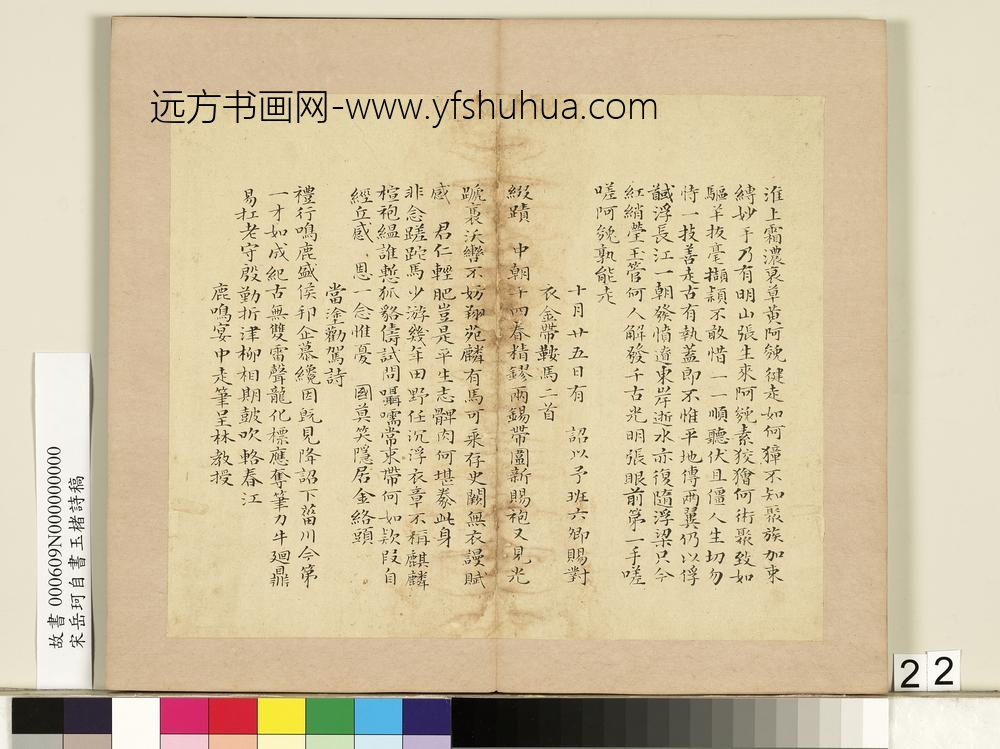 远方书画网-www.yfshuhua.com
淮上霜濃裒草黃阿㲋健走如何獐不知聚族加束
縛妙手乃有明山張生來阿㲋素狡獪何術聚致如
驅羊拔毫擷穎不敢惜一一順聽伏且僵人生切勿
恃一技善走古有執蓋即不惟平地傳兩翼仍以俘
馘浮長江一朝發憤遼東岸逝水亦復隨浮梁只今
紅綃瑩玉管何人解發千古光明張眼前第一手嗟
嗟阿㲋孰能走
十月廿五日有 詔以予班六卿賜對
衣金帶鞍馬二首
綴蹟 中朝十四春精鏐兩錫帶圍新賜袍又見光
蹏裏沃轡不妨翔苑麟有馬可乘存史闕無衣謾賦
感 君仁輕肥豈是平生志髀肉何堪豢此身
非念蹉跎馬少游幾年田野任沉浮衣章不稱麒麟
楦袍縕誰慙狐貉儔試問囁嚅常束帶何如欵段自
經丘感 恩一念惟憂 國莫笑隱居金絡頭
當塗勸駕詩
禮行鳴鹿盛侯邦企慕纔因旣見降詔下菑川今第
一才如成紀古無雙雷聲龍化標應奪筆力牛廻鼎
易扛老守殷勤折津柳相期鼓吹輅春江
鹿鳴宴中走筆呈林教授
故書 000609N000000000
宋岳珂自書玉楮詩稿
22